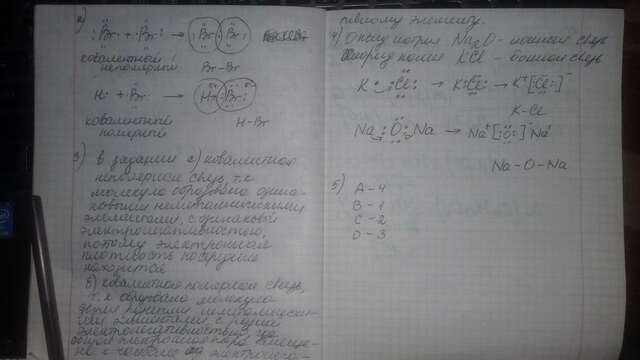 :Br· + ·Br: → :Br::Br:
ковалентная
неполярная
Br-Br
H· + ·Br: → H:Br:
ковалентная
полярная
H-Br
3) в задании а) ковалентная
неполярная связь, т.к
молекула образована одина-
ковыми неметаллическими
элементами, с одинаковой
электроотрицательностью,
поэтому электронная
плотность посередине
находится
в) ковалентная полярная связь,
т.к
молекула
с разной
общая электронная пара
электроотр-
элементу.
4) Оксид натрия Na2O - ионная связь
Хлорид калия KCl - ионная связь
K· ·Cl: → K:Cl: → K+[:Cl:]-
K-Cl
Na·:O:·Na → Na+[:O:]Na+
Na-O-Na
5) А-4
В-1
С-2
D-3